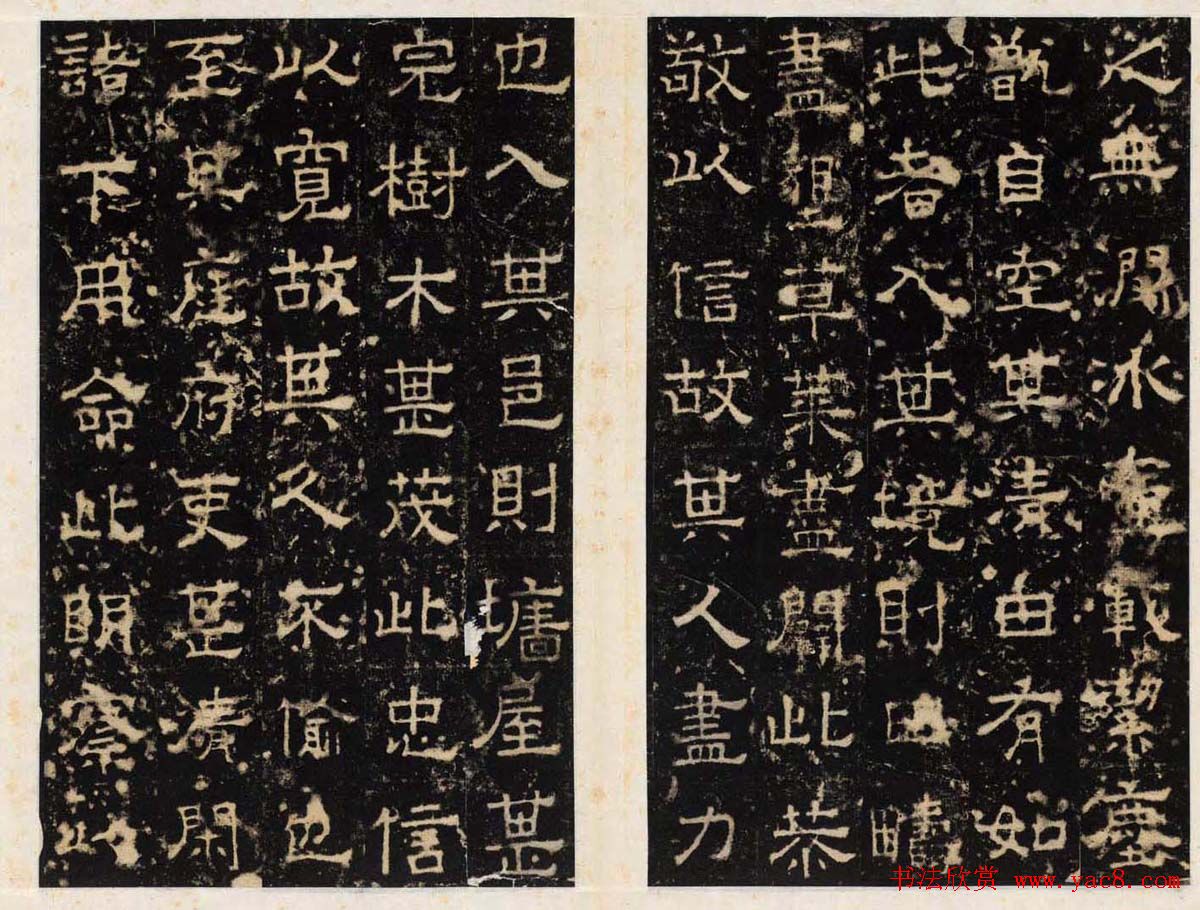 無水塵
甑自空其清由有如
此者入其境則田疇
盡草莱盡闢此恭
敬以信故其人盡力
也入其邑則墉屋甚
完樹木甚茂此忠信
以寬故其人不偷也
至其庭府吏甚清閑
諸下用命此明察
书法欣赏 www.yac8.com